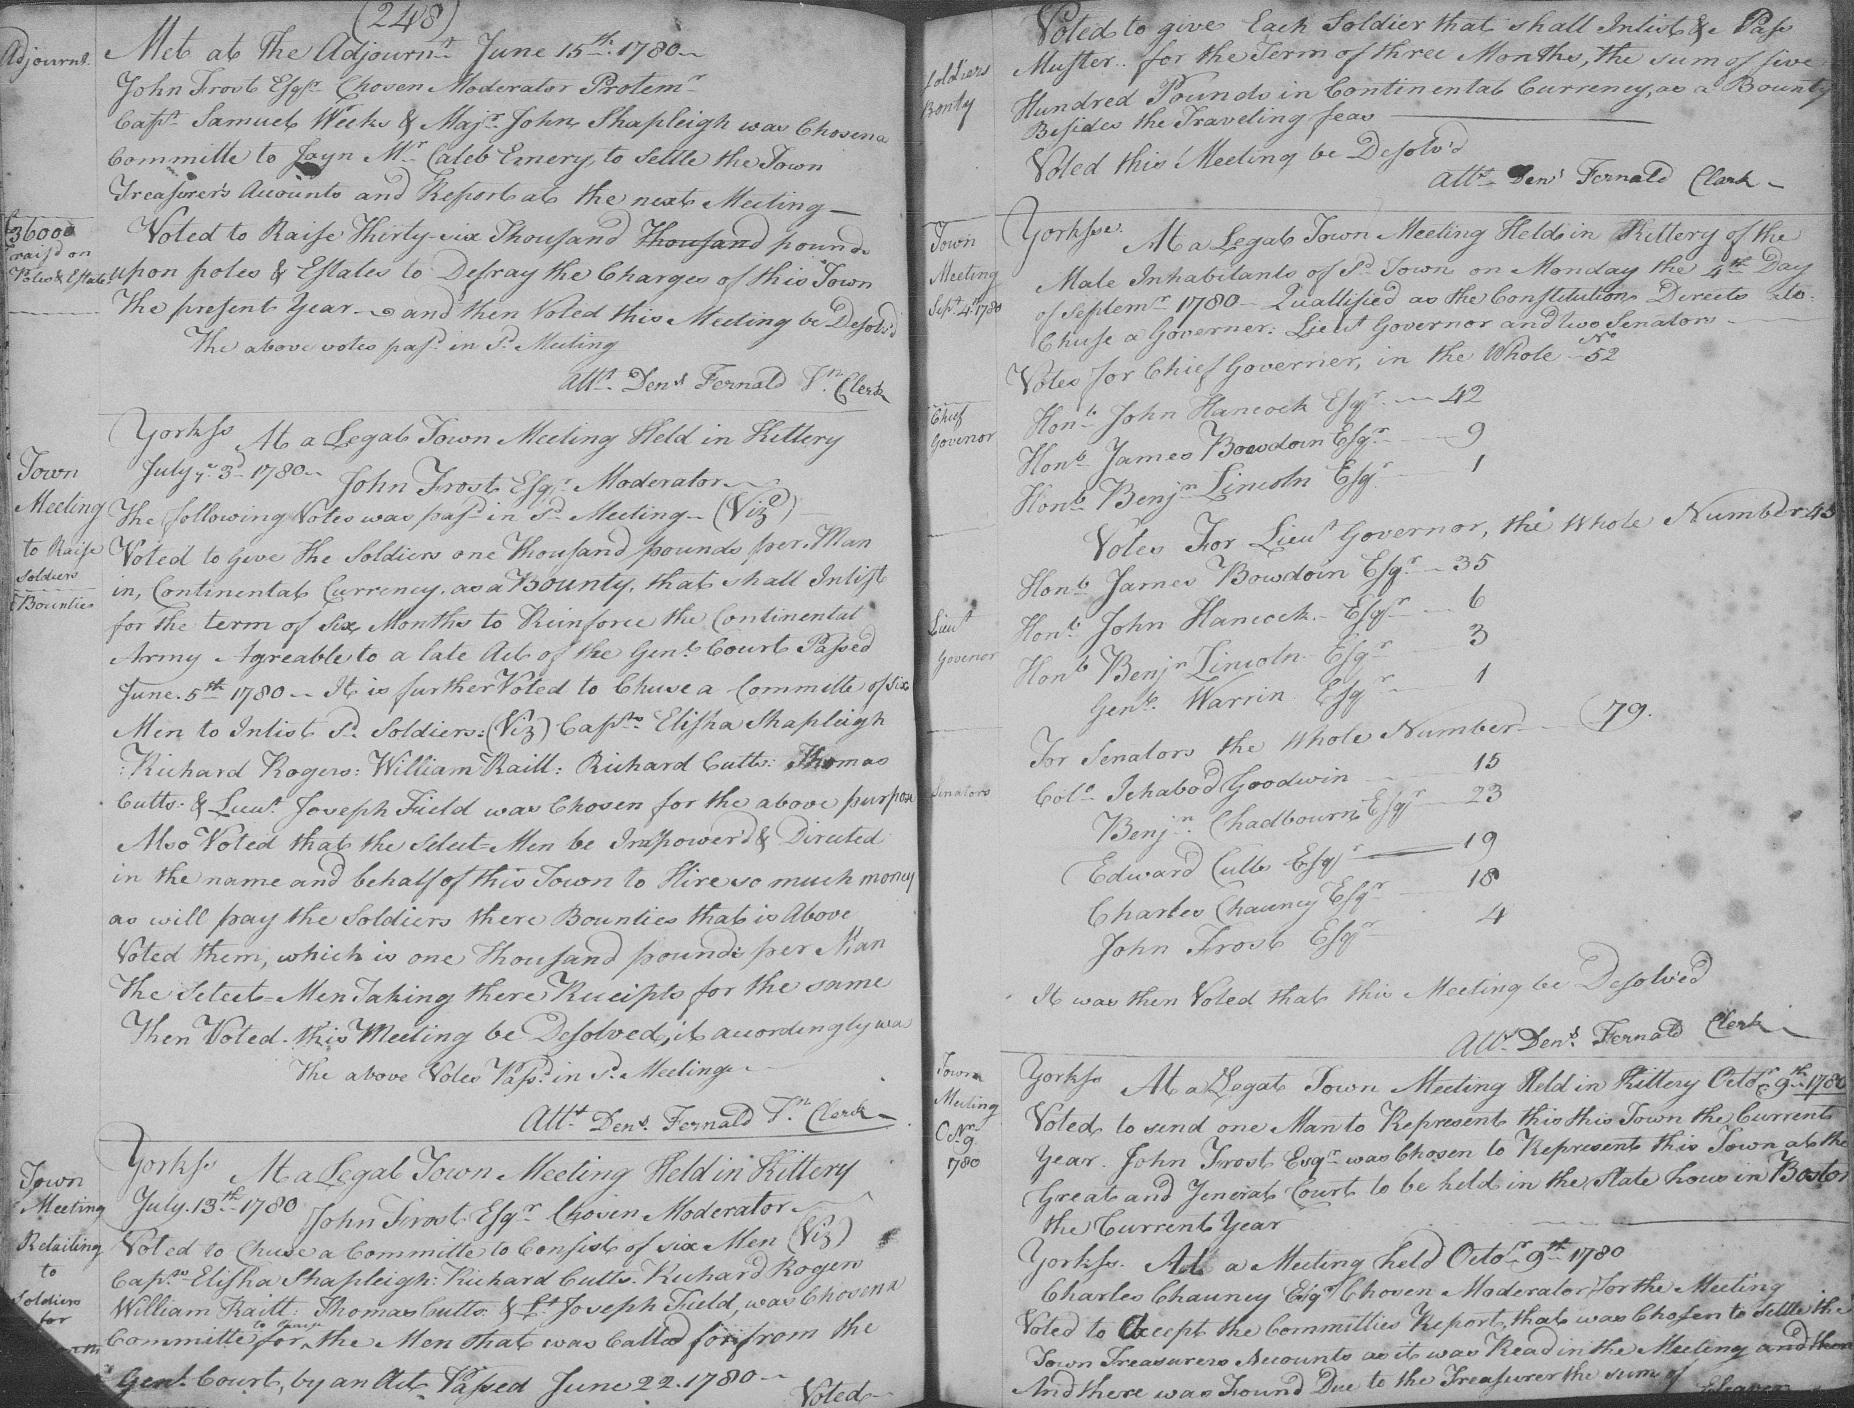 (248)
Adjournt.
Met at the Adjournt. June 15th. 1780
John Frost Esqr. Chosen Moderator Protemr
Capt. Samuel Weeks & Majr. John Shapleigh was Chosen a
Committe to Joyn Mr. Caleb Emery, to Settle the Town
Treasurer's Accounts and Report at the next Meeting
£36000
rais'd on
Poles & Estates
Voted to Raise Thirty-six Thousand Thousand pounds
upon poles & Estates to Defray the Charges of this Town
the present Year and then Voted this Meeting be Desolv'd
The above votes pasd. in sd. Meeting
Attt. Dens. Fernald Tn. Clerk
Town
Meeting
to Raise
Soldiers
Bounties
Yorkss At a Legal Town Meeting Held in Kittery
July ye 3d 1780 John Frost Esqr. Moderator
The following Votes was pasd. in sd. Meeting (Vizt)
Voted to give the Soldiers one Thousand pounds per Man
in, Continental Currency. as a Bounty. that shall Inlist
for the term of six Months to Reinforce the Continental
Army Agreable to a late Act of the Genl. Court Passed
June. 5th 1780 It is further Voted to Chuse a Committe of six
Men to Inlist sd. Soldiers: (Viz) Capts. Elisha Shapleigh
: Richard Rogers: William Raitt: Richard Cutts: Thomas
Cutts. & Lieut. Joseph Field was Chosen for the above purpose
Also Voted that the Select-Men be Impower'd & Directed
in the name and behalf of this Town to Hire so much money
as will pay the Soldiers there Bounties that is Above
Voted them, which is one thousand pounds per Man
the Select-Men Taking there Receipts for the same
Then Voted this Meeting be Desolved, it accordingly was
the above Votes Passd. in sd. Meeting
Attt Dens. Fernald Tn. Clerk
Town
Meeting
Relaiting
to
Soldiers
for
Yorkss At a Legal Town Meeting Held in Kittery
July. 13th. 1780 John Frost. Esqr. Chosen Moderator
Voted to Chuse a Committe to Consist of six Men (Viz)
Capts. Elisha Shapleigh: Richard Cutts. Richard Rogers
William Raitt: Thomas Cutts. & Lt. Joseph Field, was Chosen a
Committe for, to raise the Men that was Called for from the
Genl. Court, by an Act Passed June 22. 1780
Voted
Soldiers
Bonty
Voted to give Each Soldier that shall Inlist & Pass
Muster. for the Term of three Months, the sum of five
Hundred Pounds in Continental Currency, as a Bounty
Besides the Traveling feas
Voted this Meeting be Desolv'd
Attt. Dens Fernald Clerk
Town
Meeting
Sept. 4th. 1780
Yorkss. At a Legal Town Meeting Held in Kittery of the
Male Inhabitants of sd. Town on Monday the 4th Day
of Septemr. 1780 Quallified as the Constitution Directs to.
Chuse a Governer: Lieut Governor and two Senators
Votes for Chief Governer, in the Whole No 52
Chief
Govenor
Honl. John Hancock Esqr. 42
Honl. James Bowdoin Esqr 9
Honl. Benjn Lincoln Esqr 1
Votes For Lieut Governor, the Whole Number 45
Lieut
Govenor
Honl. James Bowdoin Esqr 35
Honl. John Hancock. Esqr 6
Honl. Benjn Lincoln Esqr 3
Genl. Warrin Esqr 1
Senators
For Senators the Whole Number 79.
Colo. Ichabod Goodwin 15
Benjn. Chadbourn Esqr 23
Edward Cutts Esqr 19
Charles Chauncy Esqr 18
John Frost Esqr 4
It was then Voted that this Meeting be Desolved
Attt. Dens. Fernald Clerk
Town
Meeting
Octr. 9.
1780
Yorkss At a Legal Town Meeting Held in Kittery Octor. 9th 1780
Voted to send one Man to Represent this this Town the Current
Year. John Frost Esqr. was Chosen to Represent this Town at the
Great and General Court to be held in the State hous in Boston
the Current Year
Yorkss. At a Meeting held Octor. 9th. 1780
Charles Chauncy Esqr Chosen Moderator for the Meeting
Voted to Accept the Committies Report, that was Chosen to Settle the
Town Treasurers Accounts as it was Read in the Meeting and then
And there was Found Due to the Treasurer the sum of